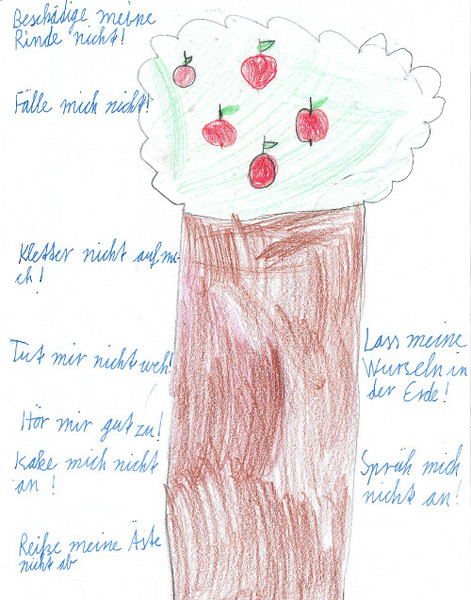 Beschädige meine
Rinde nicht!
Fälle mich nicht!
Kletter nicht auf mi-
ch!
Tut mir nicht weh!
Hör mir gut zu!
Kake mich nicht
an!
Reiße meine Äste
nicht ab
Lass meine
Wurseln in
der Erde!
Sprüh mich
nicht an!